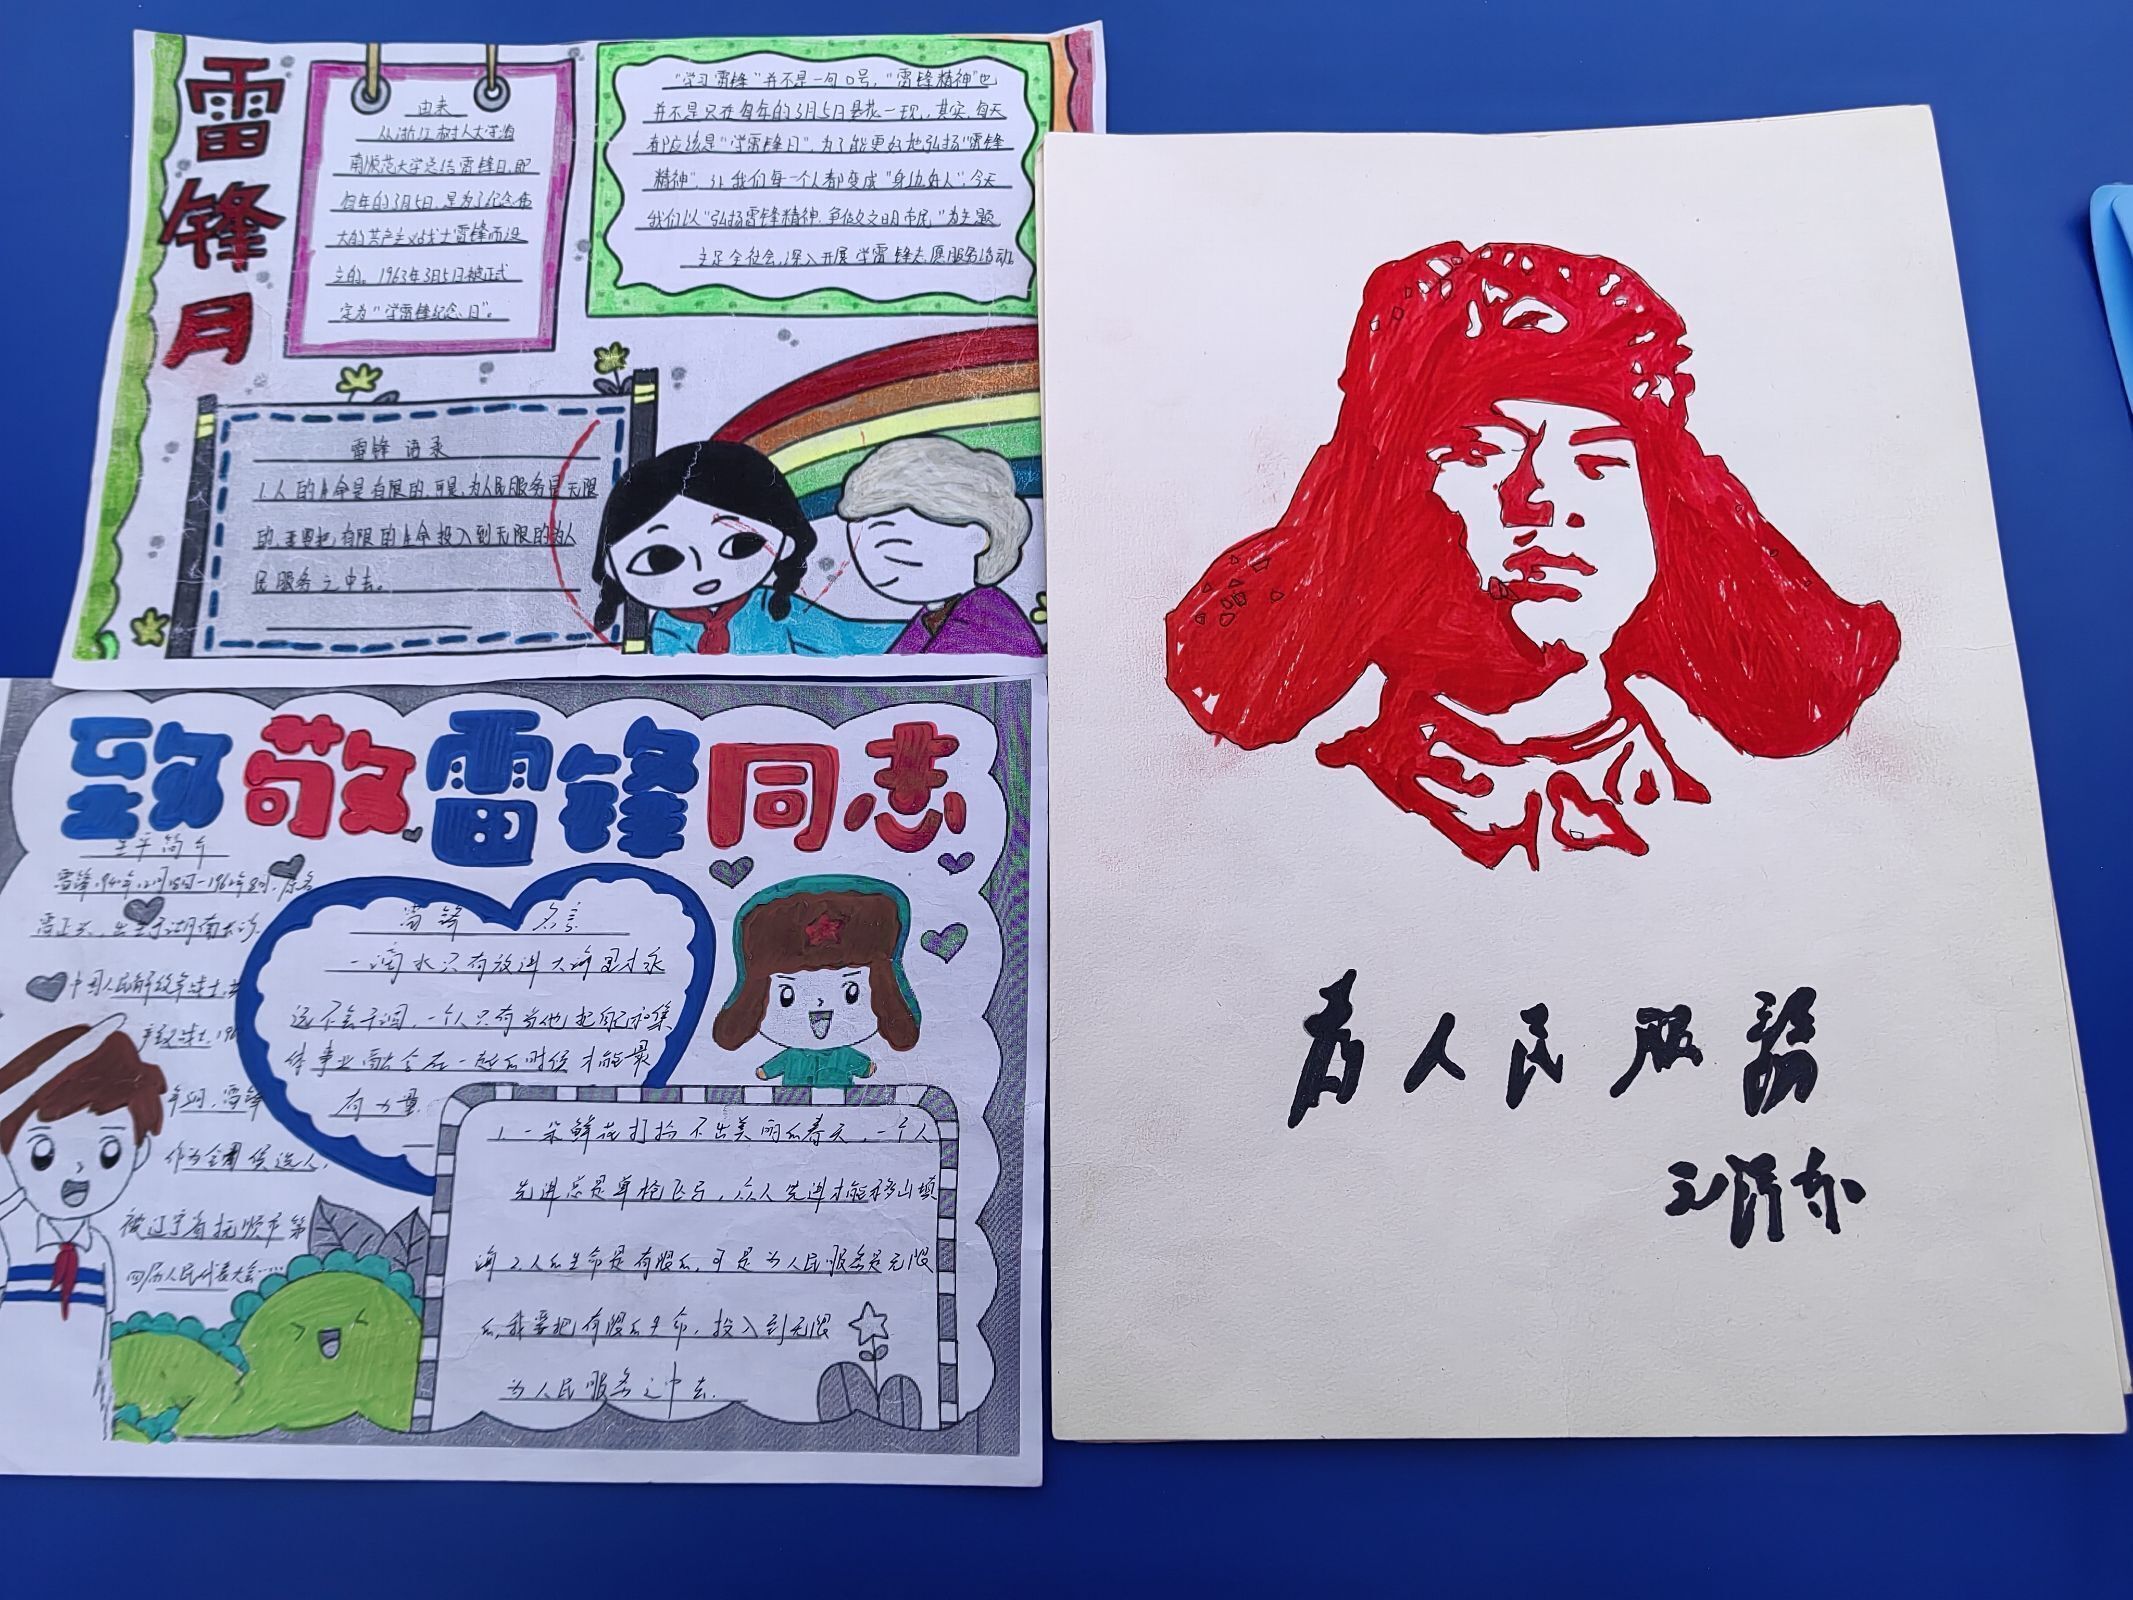 雷锋月
由来
从浙江树人大学海
南师范大学总结雷锋日,即
每年的3月5日,是为了纪念伟
大的共产主义战士雷锋而设
立的。1963年3月5日被正式
定为“学雷锋纪念日”。
“学习雷锋”并不是一句口号,“雷锋精神”也
并不是只在每年的3月5日昙花一现,其实,每天
都应该是“学雷锋日”,为了能更好地弘扬“雷锋
精神”,让我们每一个人都变成“身边好人”,今天
我们以“弘扬雷锋精神,争做文明市民”为主题
立足全社会,深入开展学雷锋志愿服务活动。
雷锋语录
1.人的生命是有限的,可是,为人民服务是无限
的,我要把有限的生命投入到无限的为人
民服务之中去。
致敬雷锋同志
生平简介
雷锋,940年12月18日-1962年8月,原名
雷正兴,出生于湖南长沙,
中国人民解放军战士,共
产主义战士,196
年间,雷锋
作为全国候选人,
被辽宁省抚顺市第
四届人民代表大会……
雷锋名言
一滴水只有放进大海里才永
远不会干涸,一个人只有当他把自己和集
体事业融合在一起的时候才能最
有力量
1.一朵鲜花打扮不出美丽的春天,一个人
先进总是单枪匹马,众人先进才能移山填
海 2.人的生命是有限的,可是为人民服务是无限
的,我要把有限的生命,投入到无限
为人民服务之中去.
为人民服务
毛泽东